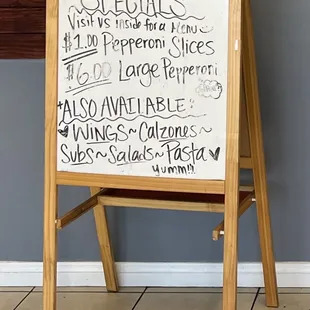 ~SPECIALS~
Visit us inside for a Menu
$1.00 Pepperoni Slices
$6.00 Large Pepperoni
*ALSO AVAILABLE*
WINGS~Calzones~
Subs~Salads~Pasta
Yumm!!!